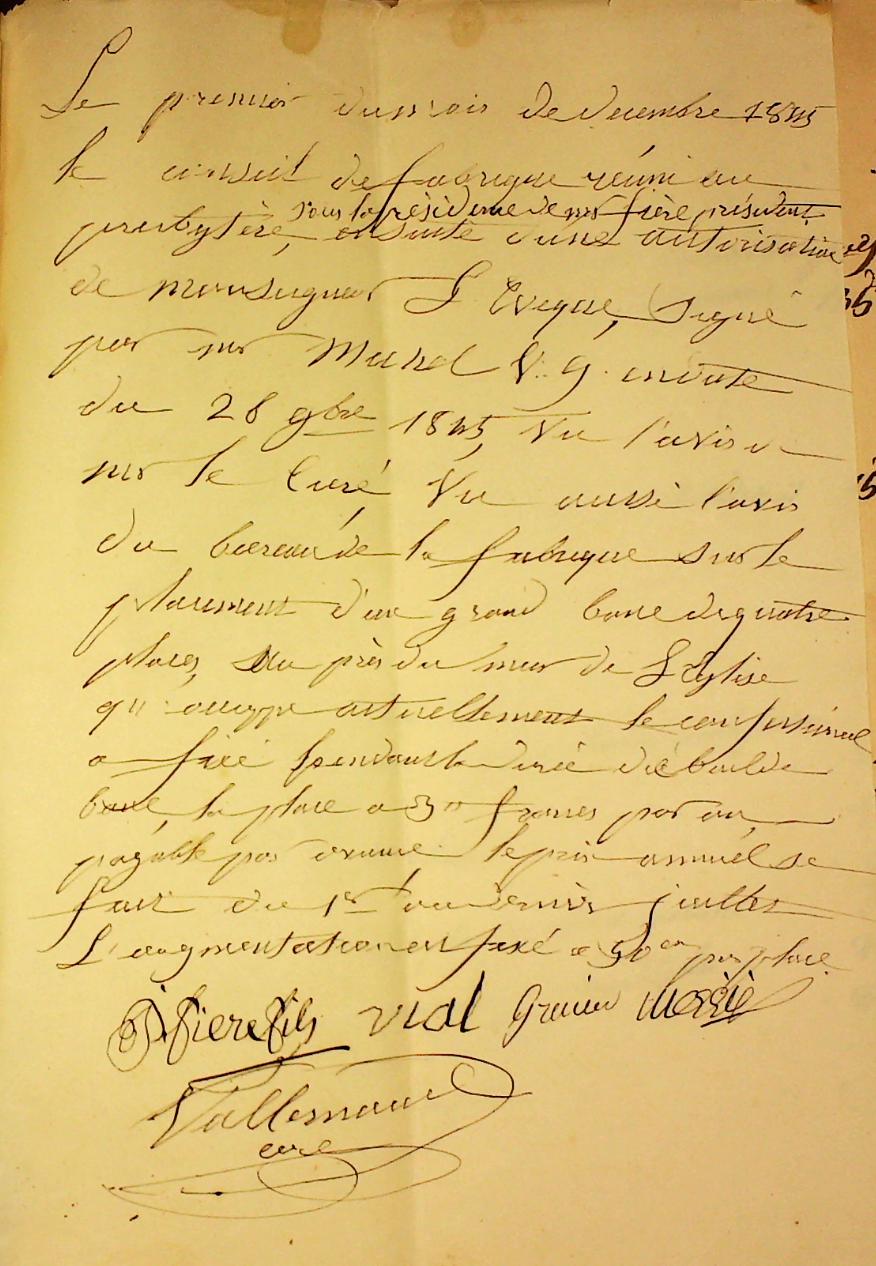 Le premier du mois de decembre 1845
le conseil de fabrique réuni au
sous la présidence de mr fière président
presbytère, ensuite d'une autorisation
de monseigneur L'Eveque, signé
par mr V. G. en date
du 28 9bre 1845, Vu l'avis de
mr le Curé, Vu aussi l'avis
du bureau de la fabrique sur le
placement d'un grand banc de quatre
places, au près du mur de L'Eglise
qu'occupe actuellement le confessional
a fixé pendant la durée du bail de
banc, la place a 3 francs par an,
payable par avance. le prix annuel se
fait du 1er au dernier juillet
L'augmentation est fixé a 50 cn par place
fière fils Vial Granier
Vallemant
curé